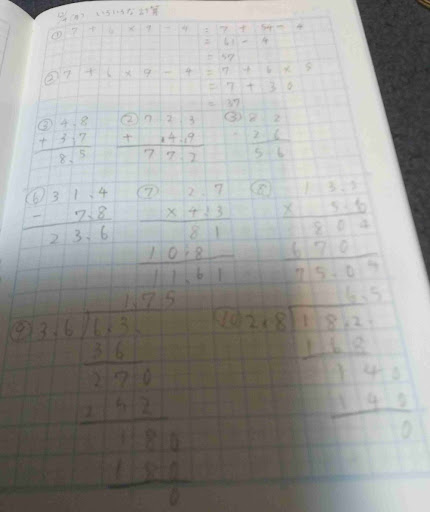 ① 7 + 6 × 9 - 4 = 7 + 54 - 4
= 61 - 4
= 57
② 7 + 6 × 9 - 4 = 7 + 6 × 5
= 7 + 30
= 37
③ 4.8
+ 3.7
8.5
② 7 2 3
+ 4.9
7 7.2
③ 8 2
2 6
5 6
⑥ 3 1.4
- 7.8
2 3.6
⑦ 2.7
× 4.3
8 1
1 0.8
1 1.6 1
⑧ 1 3.
× 5.6
8 0 4
6 7 0
7 5.0
1.7 5
⑨ 3.6 6.3.
3 6
2 7 0
2 5 2
1 8 0
1 8 0
0
6.5
⑩ 2.8 1 8.2.
1 6 8
1 4 0
1 4 0
0